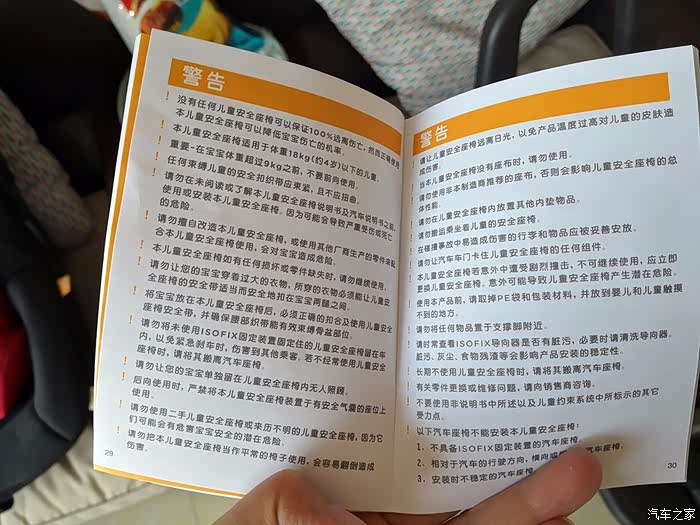 警告
! 没有任何儿童安全座椅可以保证100%远离伤亡，然而正确使用
本儿童安全座椅可以降低宝宝伤亡的机率。
! 本儿童安全座椅适用于体重18kg（约4岁）以下的儿童。
! 重要-在宝宝体重超过9kg之前，不要前向使用。
! 任何束缚儿童的安全扣织带应束紧，且不应扭曲。
! 请勿在未阅读或了解本儿童安全座椅说明书及汽车说明书之前，
使用或安装本儿童安全座椅，因为可能会导致严重受伤或死亡
的危险。
! 请勿擅自改造本儿童安全座椅，或使用其他厂商生产的零件来配
合本儿童安全座椅使用，会对宝宝造成危险。
! 本儿童安全座椅如有任何损坏或零件缺失时，请勿继续使用。
! 请勿让您的宝宝穿着过大的衣物，所穿的衣物必须能让儿童安
全座椅的安全带适当而安全地扣在宝宝两腿之间。
! 将宝宝放在本儿童安全座椅后，必须正确的扣合及使用儿童安全
座椅安全带，并确保腰部织带能有效束缚骨盆部位。
! 请勿将未使用ISOFIX固定装置固定住的儿童安全座椅留在车
内，以免紧急刹车时，伤害到其他乘客。若不经常使用儿童安全
座椅时，请将其搬离汽车座椅。
! 请勿让您的宝宝单独留在儿童安全座椅内无人照顾。
! 后向使用时，严禁将本儿童安全座椅装置于有安全气囊的座位上
使用。
! 请勿使用二手儿童安全座椅或来历不明的儿童安全座椅，因为它
们可能会有危害宝宝安全的潜在危险。
! 请勿把本儿童安全座椅当作平常的椅子使用，会容易翻倒造成
伤害。
29
警告
! 请让儿童安全座椅远离日光，以免产品温度过高对儿童的皮肤造
成伤害。
! 当本儿童安全座椅没有座布时，请勿使用。
! 请勿使用非本制造商推荐的座布，否则会影响儿童安全座椅的总
体性能。
! 请勿在儿童安全座椅内放置其他内垫物品。
! 请勿搬运乘坐着儿童的安全座椅。
! 在碰撞事故中易造成伤害的行李和物品应被妥善安放。
! 请勿让汽车车门卡住儿童安全座椅的任何组件。
! 本儿童安全座椅若意外中遭受剧烈撞击，不可继续使用，应立即
更换儿童安全座椅。意外可能导致儿童安全座椅产生潜在危险。
! 使用本产品前，请取掉PE袋和包装材料，并放到婴儿和儿童触摸
不到的地方。
! 请勿将任何物品置于支撑脚附近。
! 请时常查看ISOFIX导向器是否有脏污，必要时请清洗导向器。
脏污、灰尘、食物残渣等会影响产品安装的稳定性。
! 长期不使用儿童安全座椅时，请将其搬离汽车座椅。
! 有关零件更换或维修问题，请向销售商咨询。
! 不要使用非说明书中所述以及儿童约束系统中所标示的其它
受力点。
! 以下汽车座椅不能安装本儿童安全座椅：
1、不具备ISOFIX固定装置的汽车座椅。
2、相对于汽车的行驶方向，横向或 汽车座椅。
3、安装时不稳定的汽车座椅。
30
汽车之家